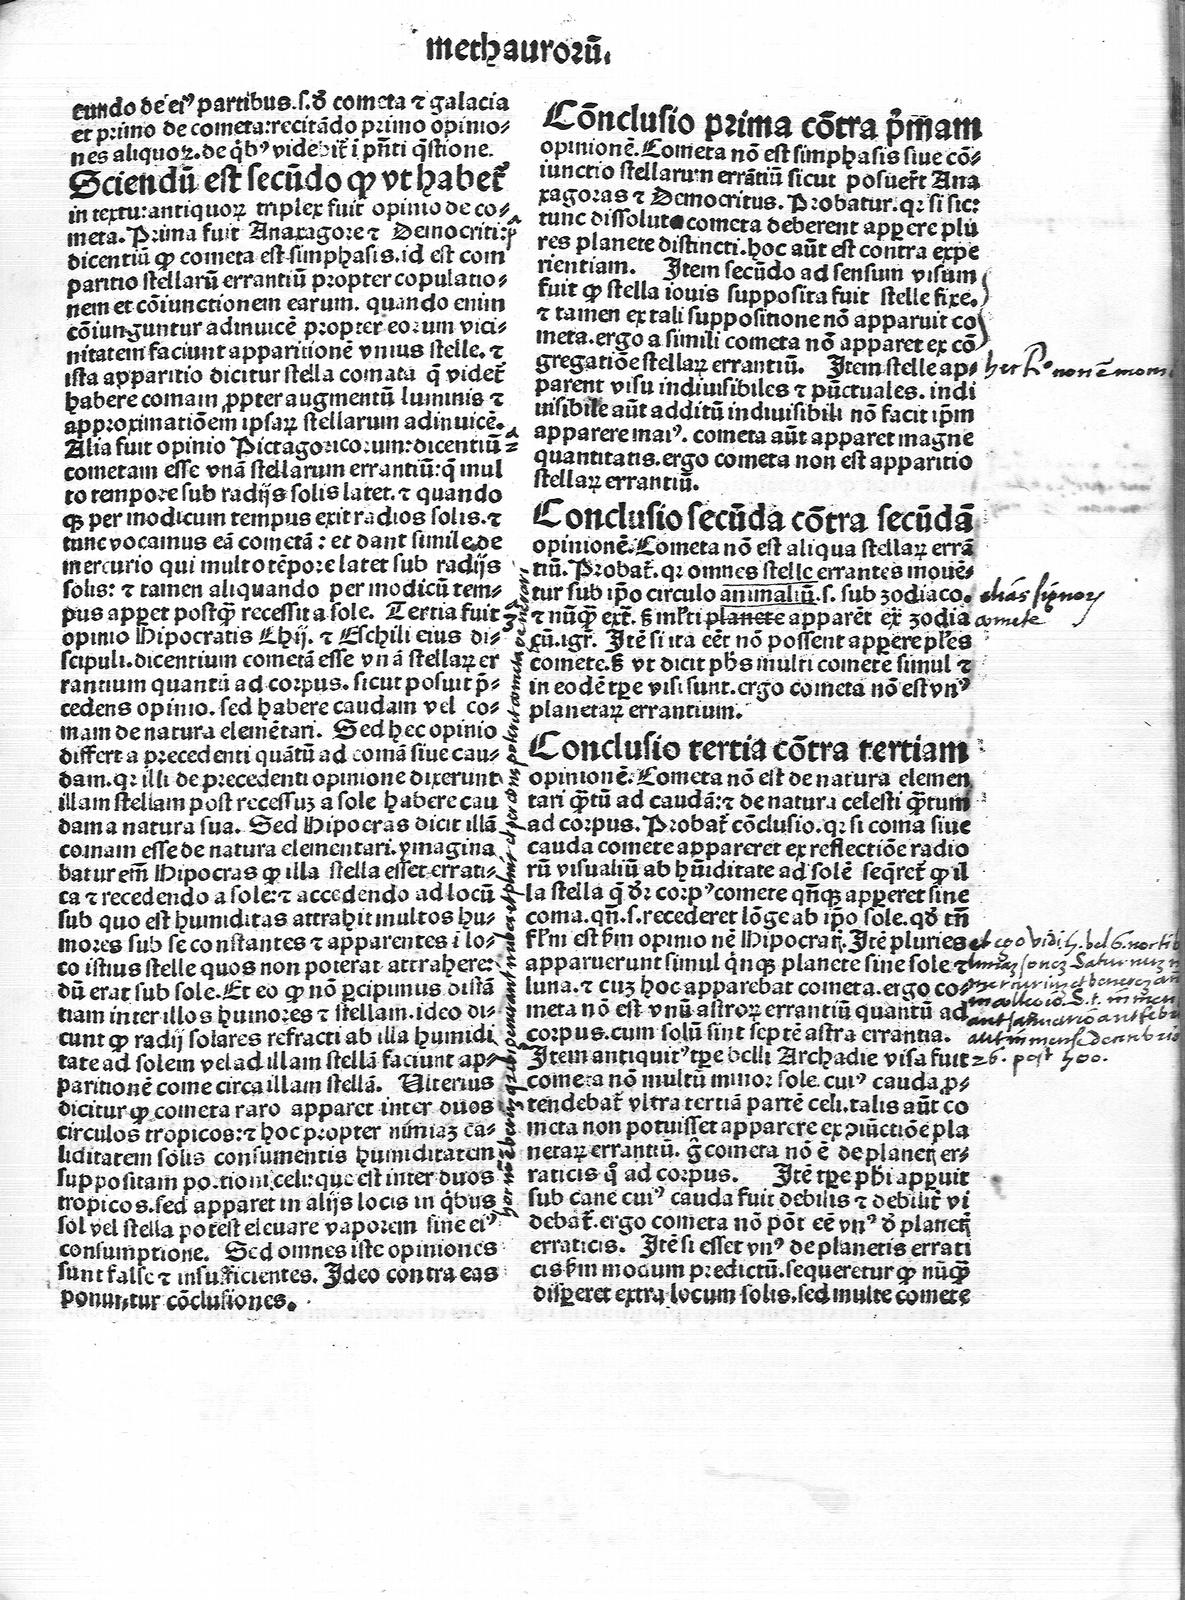 methaurorū.
cundo de eiꝰ partibus.ſ.ð cometa ⁊ galacia
et primo de cometa:recitādo primo opinio⸗
nes aliquoꝝ.de q̇bꝰ videbit̄ i pn̄ti q̄stione.
Sciendū eſt ſecūdo ꝙ vt habet̄
in textu:antiquoꝝ triplex fuit opinio de co⸗
meta. Prima fuit Anaxagore ⁊ Democriti:
dicentiū ꝙ cometa eſt ſimphaſis.id eſt com
paritio ſtellarū errantiū propter copulatio⸗
nem et cōiunctionem earum. quando enim
cōiunguntur adinuicē propter eorum vici⸗
nitatem faciunt apparitionē vnius ſtelle. ⁊
iſta apparitio dicitur ſtella comata q̄ videt̄
habere comam ꝓpter augmentū luminis ⁊
approximatiōem ipſaꝝ ſtellarum adinuicē.
Alia fuit opinio Pictagoricorum:dicentiū
cometam eſſe vnā ſtellarum errantiū:q̄ mul
to tempore ſub radijs ſolis latet. ⁊ quando
qꝫ per modicum tempus exit radios ſolis.⁊
tunc vocamus eā cometā : et dant ſimile de
mercurio qui multo tēpore latet ſub radijs
ſolis: ⁊ tamen aliquando per modicū tem⸗
pus apꝑet poſtꝙ̄ receſſit a ſole. Tertia fuit
opinio Hipocratis Chij. ⁊ Eſchili eius di⸗
ſcipuli.dicentium cometā eſſe vnā ſtellaꝝ er
rantium quantū ad corpus. ſicut poſuit p̄⸗
cedens opinio. ſed habere caudam vel co⸗
mam de natura elemētari. Sed hec opinio
differt a precedenti quātū ad comā ſiue cau⸗
dam.qꝛ illi de precedenti opinione dixerunt
illam ſtellam poſt receſſuꝫ a ſole habere cau
dam a natura ſua. Sed Hipocras dicit illā
comam eſſe de natura elementari. ymagina
batur em̄ Hipocras ꝙ illa ſtella eſſet errati⸗
ca ⁊ recedendo a ſole:⁊ accedendo ad locū
ſub quo eſt humiditas attrahit multos hu⸗
mores ſub ſe conſtantes ⁊ apparentes i lo⸗
co iſtius ſtelle quos non poterat attrahere:
dū erat ſub ſole.Et eo ꝙ nō ꝑcipimus diſtā
tiam inter illos humores ⁊ ſtellam.ideo di⸗
cunt ꝙ radij ſolares refracti ab illa humidi
tate ad ſolem vel ad illam ſtellā faciunt ap⸗
paritionē come circa illam ſtellā. Ulterius
dicitur ꝙ cometa raro apparet inter duos
circulos tropicos:⁊ hoc propter nimiaꝫ ca⸗
liditatem ſolis conſumentis humiditatem
ſuppoſitam portioni celi:que eſt inter duos
tropicos.ſed apparet in alijs locis in q̇bus
ſol vel ſtella poteſt eleuare vaporem ſine eiꝰ
conſumptione. Sed omnes iſte opiniones
ſunt falſe ⁊ inſufficientes. Ideo contra eas
ponuntur cōcluſiones.
Cōncluſio prima cōtra pͥmam
opinionē.Cometa nō eſt ſimphaſis ſiue cō⸗
iunctio ſtellarum errātiū ſicut poſuer̄t Ana
xagoras ⁊ Democritus. Probatur.qꝛ ſi ſic:
tunc diſſoluta cometa deberent apꝑere plu
res planete diſtincti.hoc aūt eſt contra expe
rientiam. Item ſecūdo ad ſenſum viſum
fuit ꝙ ſtella iouis ſuppoſita fuit ſtelle fixe.
⁊ tamen ex tali ſuppoſitione nō apparuit co
meta.ergo a ſimili cometa nō apparet ex cō
gregatiōe ſtellaꝝ errantiū. Item ſtelle ap⸗
parent viſu indiuiſibiles ⁊ pūctuales. indi
uiſibile aūt additū indiuiſibili nō facit ip̄m
apparere maiꝰ. cometa aūt apparet magne
quantitatis.ergo cometa non eſt apparitio
ſtellaꝝ errantiū.
Concluſio ſecūda cōtra ſecūdā
opinionē.Cometa nō eſt aliqua ſtellaꝝ errā
tiū. Probat̄. qꝛ omnes ſtelle errantes mouē⸗
tur ſub ip̄o circulo animaliū.ſ. ſub zodiaco.
⁊ nūꝙ̄ ext̄. ſꝫ ml̄ti planete apparēt ex̄ zodia
cū.igr̄. Itē ſi ita eēt nō poſſent apꝑere pl̄es
comete.ſꝫ vt dicit ph̄s multi comete ſimul ⁊
in eodē tꝑe viſi ſunt.ergo cometa nō eſt vnꝰ
planetaꝝ errantium.
Concluſio tertia cōtra tertiam
opinionē.Cometa nō eſt de natura elemen
tari ꝙ̄tū ad caudā:⁊ de natura celeſti ꝙ̄tum
ad corpus. Probat̄ cōcluſio.qꝛ ſi coma ſiue
cauda comete appareret ex reflectiōe radio
rū viſualiū ab hūiditate ad ſolē ſeq̄ret̄ ꝙ il
la ſtella q̄ dr̄ corpꝰ comete qn̄qꝫ apꝑeret ſine
coma.qn̄.ſ.recederet lōge ab ip̄o ſole.qð tn̄
fl̄m eſt ẜm opinionē Hipocratꝭ. Itē pluries
apparuerunt ſimul q̇nqꝫ planete ſine ſole ⁊
luna.⁊ cuꝫ hoc apparebat cometa.ergo co⸗
meta nō eſt vnū aſtroꝝ errantiū quantū ad
corpus.cum ſolū ſint ſeptē aſtra errantia.
Item antiquitꝰ tꝑe belli Archadie viſa fuit
cometa nō multū minor ſole.cuiꝰ cauda ꝓ⸗
tendebat̄ vltra tertiā partē celi.talis aūt co
meta non potuiſſet apparere ex ꝯiūctiōe pla
netaꝝ errantiū. g̊ cometa nō ē de planetꝭ er⸗
raticis q̊ ad corpus. Itē tꝑe phi apꝑuit
ſub cane cuiꝰ cauda fuit debilis ⁊ debilit̄ vi
debat̄.ergo cometa nō pōt eē vnꝰ ð planetꝭ
erraticis. Itē ſi eſſet vnꝰ de planetis errati
cis ẜm modum predictū.ſequeretur ꝙ nūꝙ̄
diſꝑeret extra locum ſolis.ſed multe comete
comete
26. post hoc.